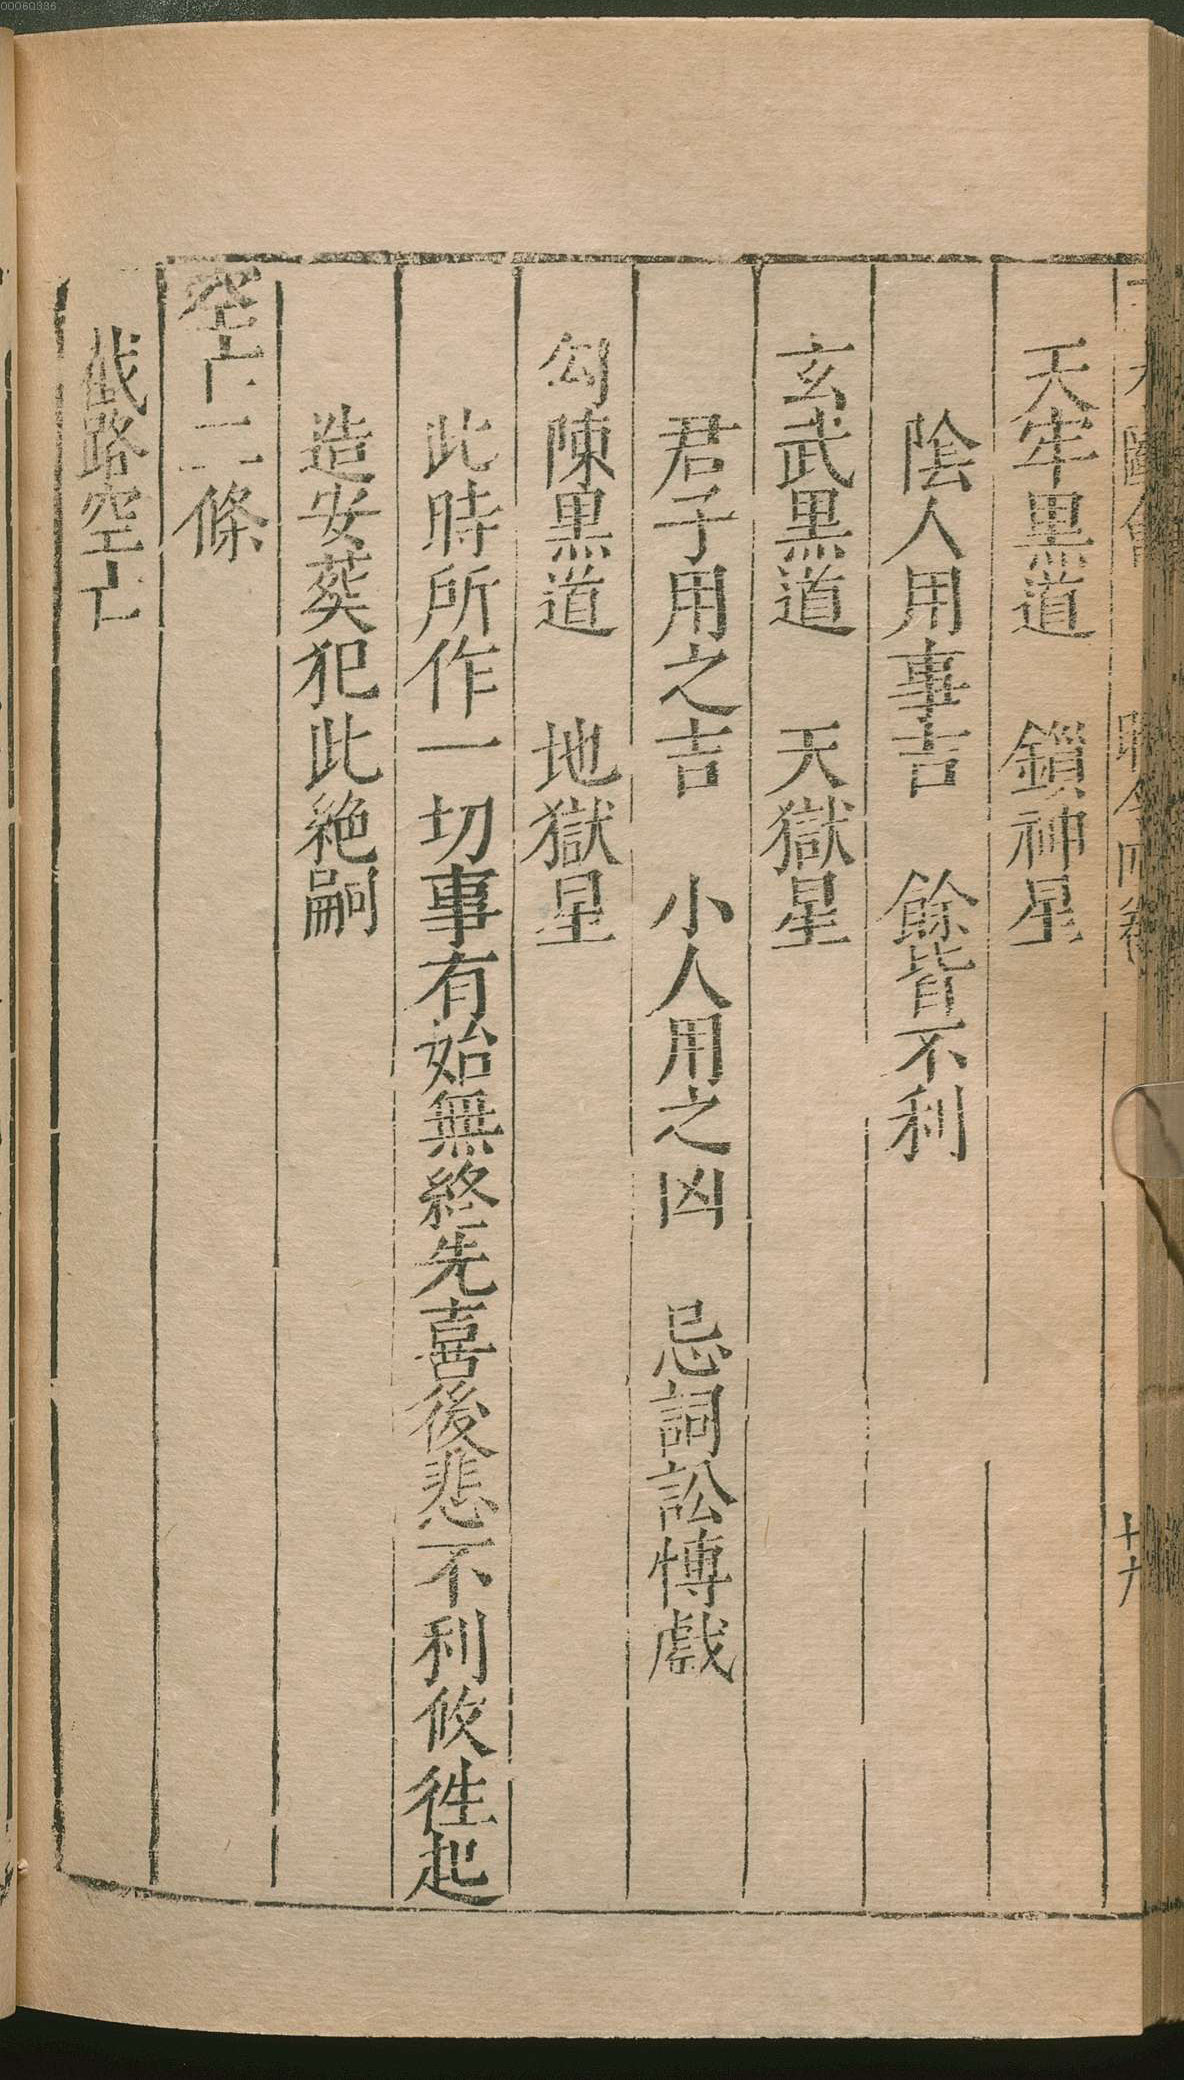 天牢黑道　鎖神星
陰人用事吉　餘皆不利
玄武黑道　天獄星
君子用之吉　小人用之凶　忌詞訟愽戲
勾陳黑道　地獄星
此時所作一切事有始無終先喜後悲不利攸徃起
造安葬犯此絶嗣
空亡二條
截路空亡
00060386